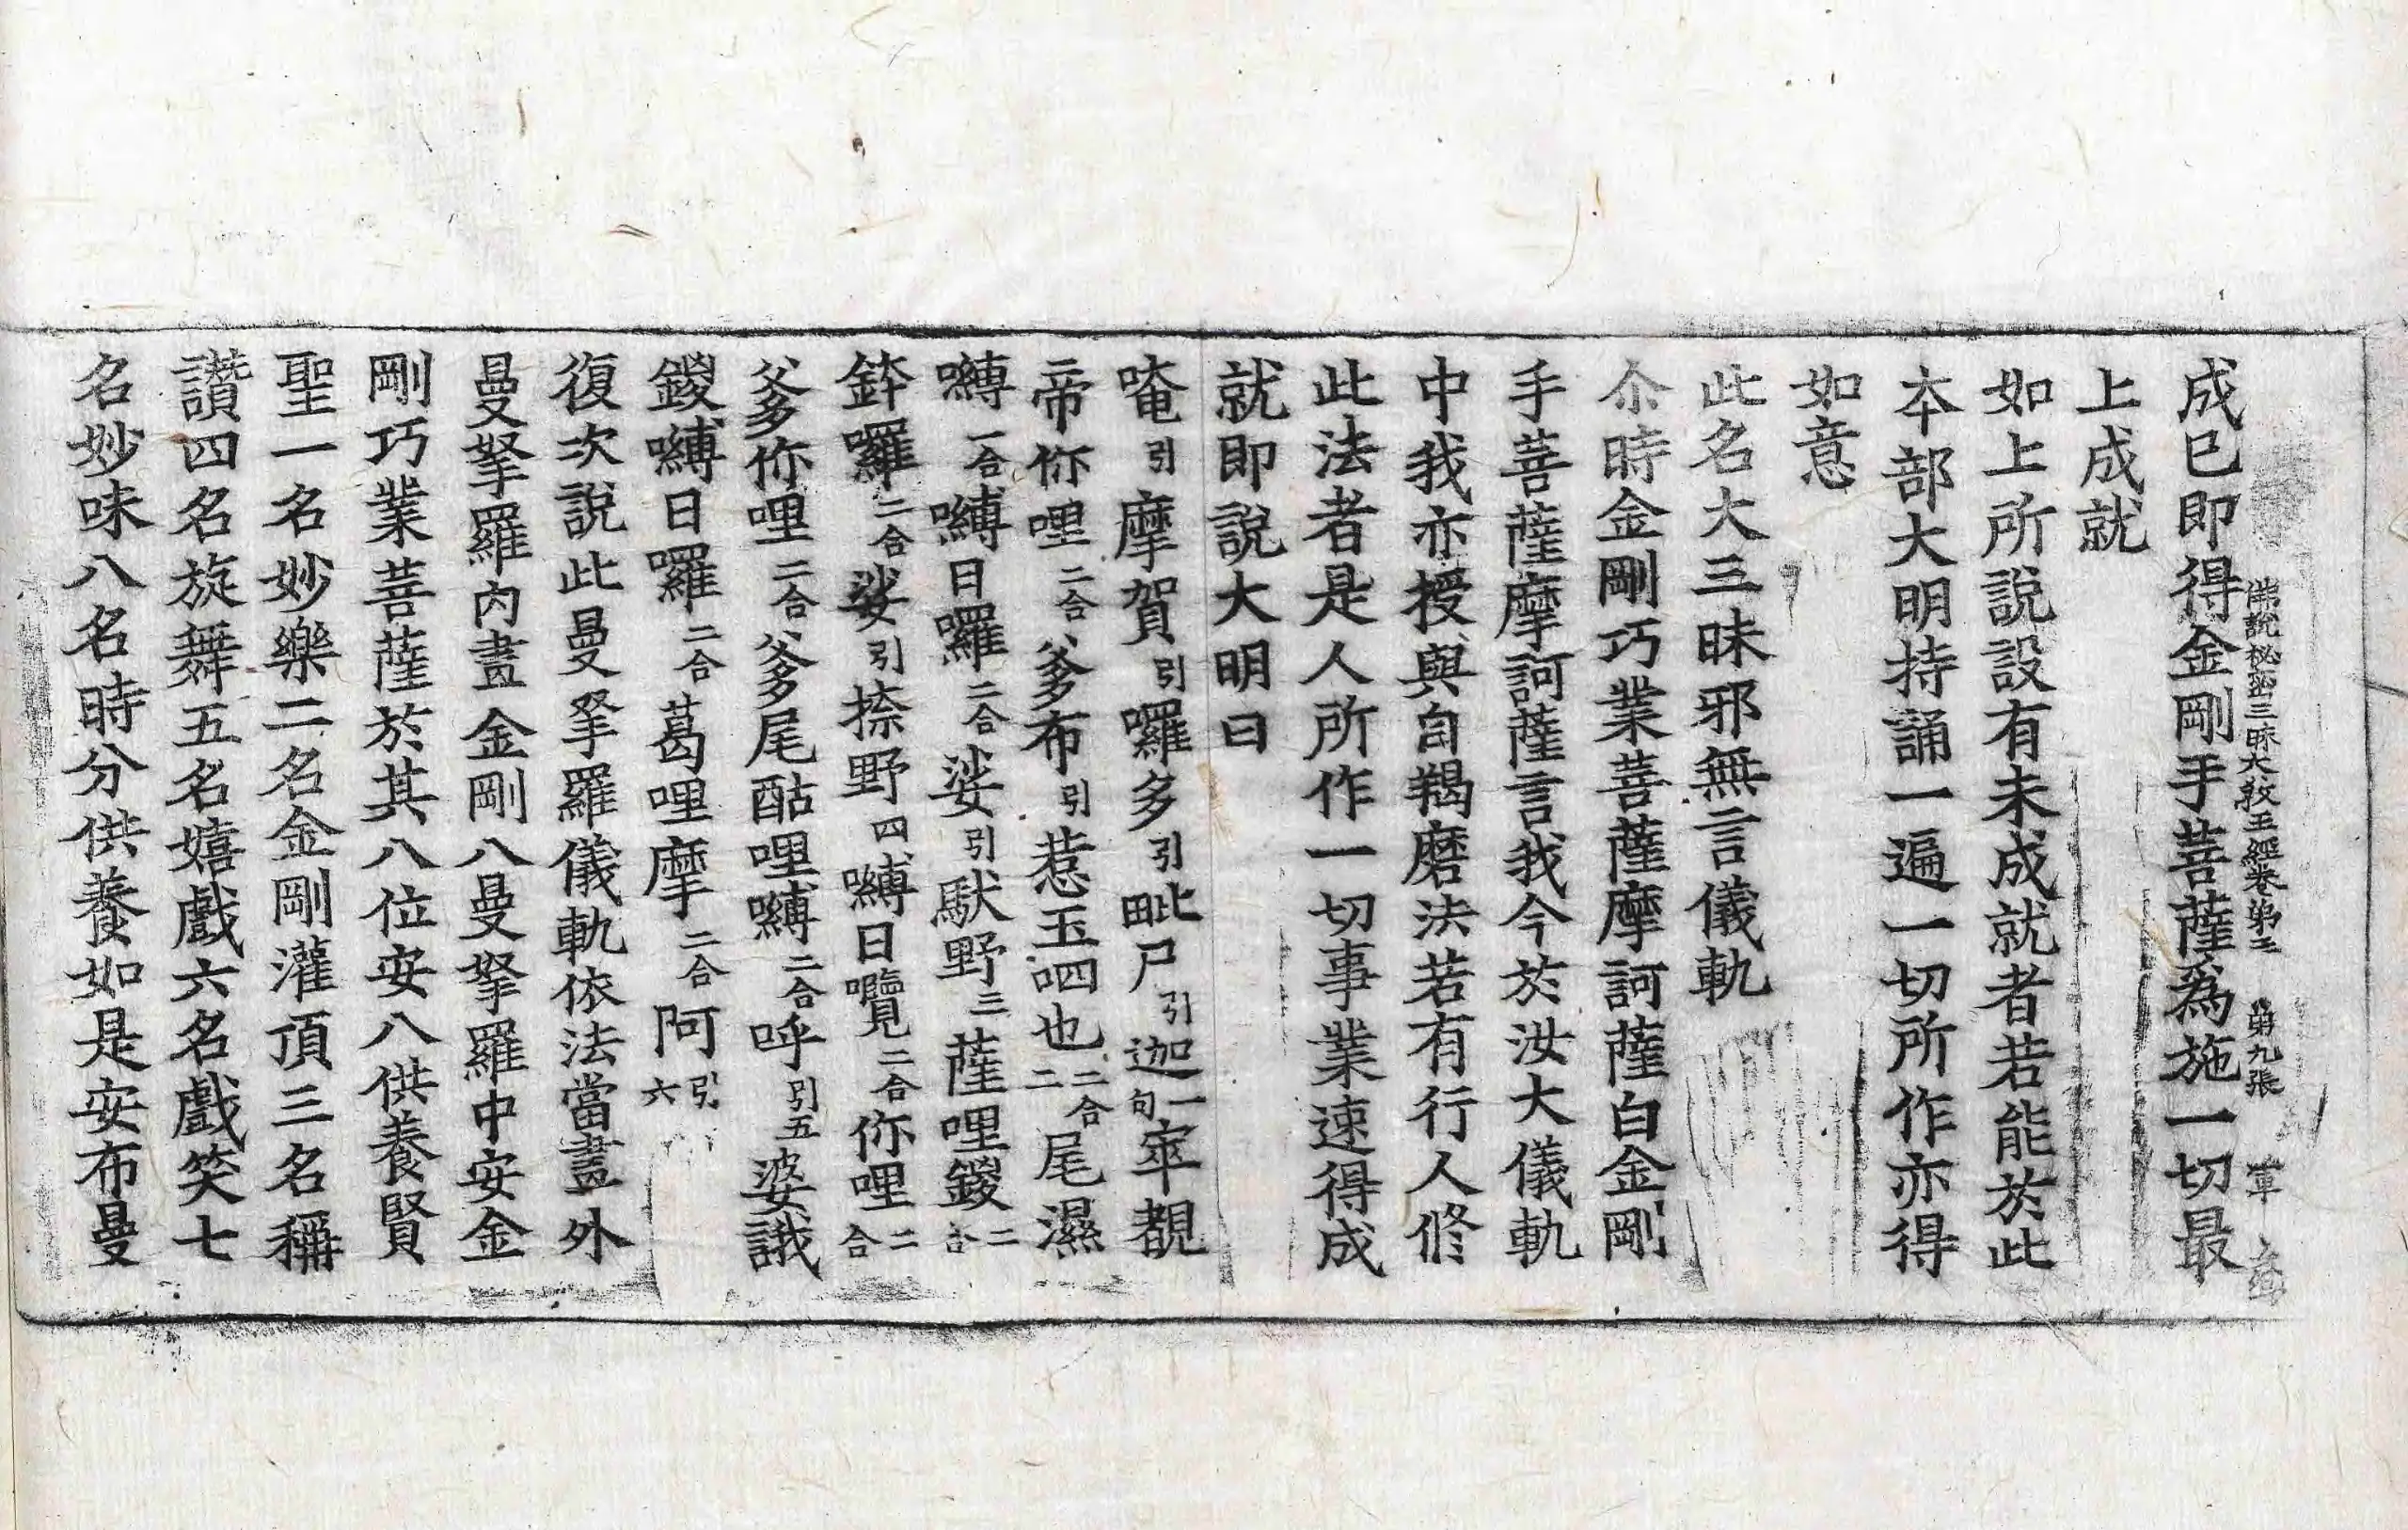 佛說秘密三昧大教王經卷第三 第九張 軍
成已即得金剛手菩薩爲施一切最
上成就
如上所說設有未成就者若能於此
本部大明持誦一遍一切所作亦得
如意
此名大三昧邪無言儀軌
尒時金剛巧業菩薩摩訶薩白金剛
手菩薩摩訶薩言我今於汝大儀軌
中我亦授與自羯磨法若有行人修
此法者是人所作一切事業速得成
就即說大明曰
唵引摩賀引囉多引毗尸引迦一句窣覩
帝你哩二合爹布引惹玉呬也二合二尾濕
嚩二合嚩日囉二合娑引馱野三薩哩鑁二合
鉢囉二合娑引捺野四嚩日囕二合你哩二合
爹你哩二合爹尾酤哩嚩二合呼引五婆誐
鑁嚩日囉二合葛哩摩二合阿引六
復次說此曼拏羅儀軌依法當畫外
曼拏羅內畫金剛八曼拏羅中安金
剛巧業菩薩於其八位安八供養賢
聖一名妙樂二名金剛灌頂三名稱
讚四名旋舞五名嬉戲六名戲笑七
名妙味八名時分供養如是安布曼